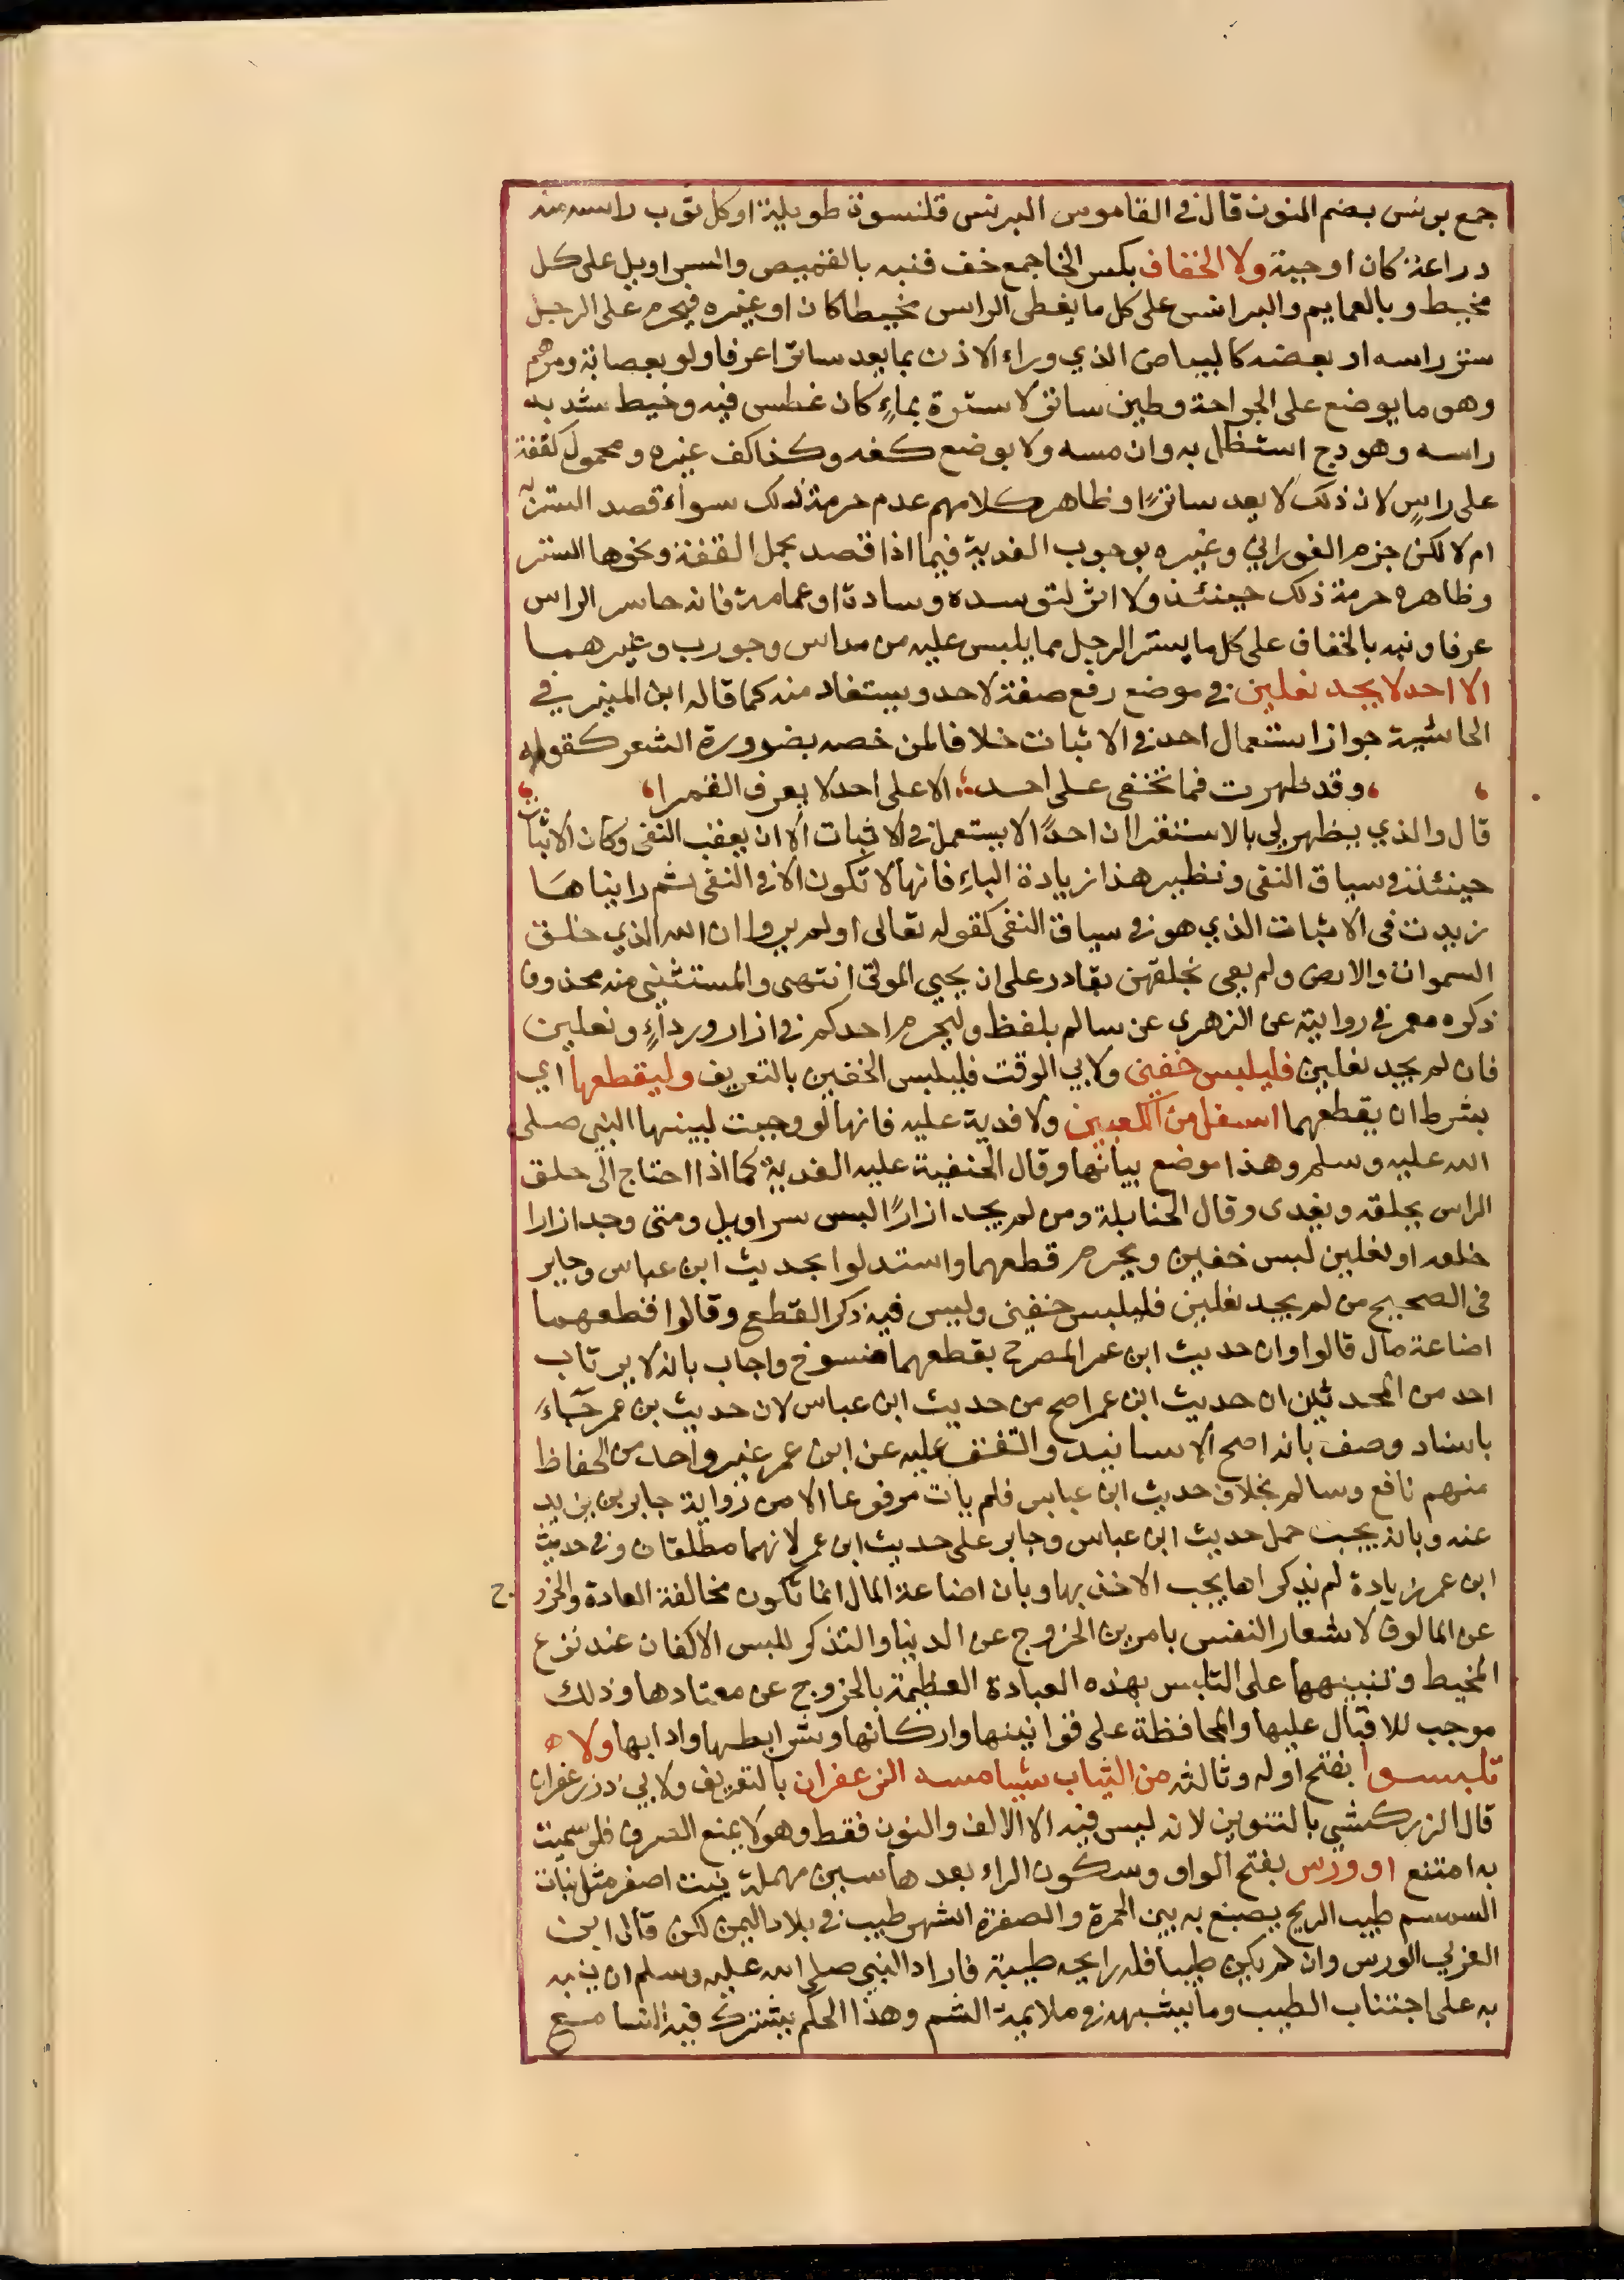 جمع برنس بضم النون قال في القاموس البرنس قلنسوة طويلة او كل ثوب راسه منه
دراعة كان او جبة ولا الخفاف بكسر الخا جمع خف فنبه بالقميص والسراويل على كل
مخيط وبالعمايم والبرانس على كل ما يغطى الراس مخيطا كان او غيره فيحرم على الرجل
ستر راسه او بعضه كالبياض الذي وراء الاذن بما يعد ساترا عرفا ولو بعصابة ومرهم
وهو ما يوضع على الجراحة وطين ساتر لا سترة بماءٍ كان غطس فيه وخيط شد به
راسه وهودج استظل به وان مسه ولا بوضع كفه وكذا كف غيره ومحمول كقفة
على راسٍ لان ذلك لا يعد ساترًا وظاهر كلامهم عدم حرمة ذلك سواء قصد الستر به
ام لا لكن جزم الفوراني وغيره بوجوب الفدية فيما اذا قصد بحمل القفة ونحوها الستر
وظاهره حرمة ذلك حينئذ ولا اثر لتوسده وسادة او عمامة فانه حاسر الراس
عرفا ونبه بالخفاف على كل ما يستر الرجل مما يلبس عليه من مداس وجورب وغيرهما
الا احد لا يجد نعلين في موضع رفع صفة لاحد ويستفاد منه كما قاله ابن المنير في
الحاشية جواز استعمال احد في الاثبات خلافا لمن خصه بضرورة الشعر كقوله
وقد ظهرت فما تخفى على احد الا على احد لا يعرف القمرا
قال والذي يظهر لي بالاستقرا ان احدًا لا يستعمل في الاثبات الا ان يعقب النفي وكان الاثبات
حينئذ في سياق النفي ونظير هذا زيادة الباءِ فانها لا تكون الا في النفي ثم رايناها
زيدت في الاثبات الذي هو في سياق النفي كقوله تعالى او لم يروا ان الله الذي خلق
السموات والارض ولم يعي بخلقهن بقادر على ان يحيي الموتى انتهى والمستثنى منه محذوف
ذكره معمر في روايته عن الزهري عن سالم بلفظ وليحرم احدكم في ازار ورداءٍ ونعلين
فان لم يجد نعلين فليلبس خفين ولابي الوقت فليلبس الخفين بالتعريف وليقطعهما اي
بشرط ان يقطعهما اسفل من الكعبين ولا فدية عليه فانها لو وجبت لبينها النبي صلى
الله عليه وسلم وهذا موضع بيانها وقال الحنفية عليه الفدية كما اذا احتاج الى حلق
الراس يحلقه ويفدى وقال الحنابلة ومن لم يجد ازارًا لبس سراويل ومتى وجد ازارا
خلعه او نعلين لبس خفين ويحرم قطعهما واستدلوا بحديث ابن عباس وجابر
في الصحيح من لم يجد نعلين فليلبس خفين وليس فيه ذكر القطع وقالوا قطعهما
اضاعة مال قالوا وان حديث ابن عمر المصرح بقطعهما منسوخ واجاب بانه لا يرتاب
احد من المحدثين ان حديث ابن عمر اصح من حديث ابن عباس لان حديث بن عمر جَاءَ
باسناد وصف بانه اصح الاسانيد واتفق عليه عن ابن عمر غير واحد من الحفاظ
منهم نافع وسالم بخلاف حديث ابن عباس فلم يات مرفوعا الا من رواية جابر بن زيد
عنه وبانه يجب حمل حديث ابن عباس وجابر على حديث ابن عمر لانهما مطلقان وفي حديث
ابن عمر زيادة لم يذكراها يجب الاخذ بها وبان اضاعة المال انما تكون مخالفة العادة والخرو ج
عن المالوف لاشعار النفس بامرين الخروج عن الدنيا والتذكر للبس الاكفان عند نزع
المخيط وتنبيهها على التلبس بهذه العبادة العظيمة بالخروج عن معتادها وذلك
موجب للاقبال عليها والمحافظة على قوانينها واركانها وشرايطها وادابها ولا
تلبسوا بفتح اوله وثالثه من الثياب شيئا مسه الزعفران بالتعريف ولابي ذر زعفران
قال الزركشي بالتنوين لانه ليس فيه الا الالف والنون فقط وهو لا يمنع الصرف فلو سميت
به امتنع او ورس بفتح الواو وسكون الراء بعدها سين مهملة نبت اصفر مثل نبات
السمسم طيب الريح يصبغ به بين الحمرة والصفرة اشهر طيب في بلاد اليمن لكن قال ابن
العربي الورس وان لم يكن طيبا فله رايحه طيبة فاراد النبي صلى الله عليه وسلم ان ينبه
به على اجتناب الطيب وما يشبهه في ملايمة الشم وهذا الحكم يشترك فيه النسا مع